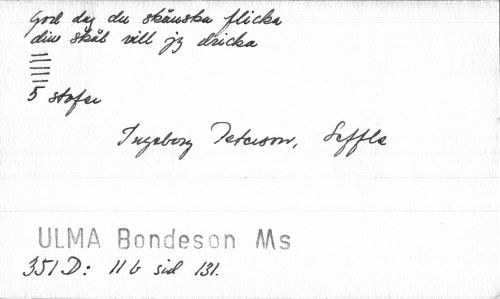 God dag du skånska flicka
din skål vill jg dricka
5 strofer
Ingeborg Peterson, Säffle
ULMA Bondeson Ms
351D: 11 b sid 131.